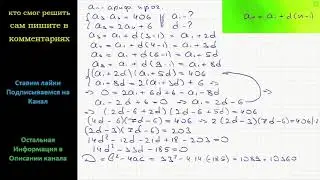 кто смог решить
сам пишите в
комментариях
Ставим лайки
Подписываемся на
Канал
Остальная
Информация в
Описании канала
aₙ - ариф. прог.
a₃ a₆ = 406
a₉ = 2a₄ + 6
a₁ - ?
d - ?
aₙ = a₁ + d(n-1)
a₃ = a₁ + d(3-1) = a₁ + 2d
a₄ = a₁ + d(4-1) = a₁ + 3d
a₆ = a₁ + d(6-1) = a₁ + 5d
a₉ = a₁ + d(9-1) = a₁ + 8d
(a₁+2d)(a₁+5d) = 406
a₁+8d = 2(a₁+3d)+6 =>
=> 0 = 2a₁+6d+6-a₁-8d
a₁-2d+6=0 => a₁ = 2d-6
=> (2d-6+2d)(2d-6+5d) = 406
(4d-6)(7d-6) = 406
(2d-3)(7d-6) = 203
14d²-12d-21d+18-203=0
14d²-33d-185=0
D = b²-4ac = 33²-4·14·(-185) = 1089+10360